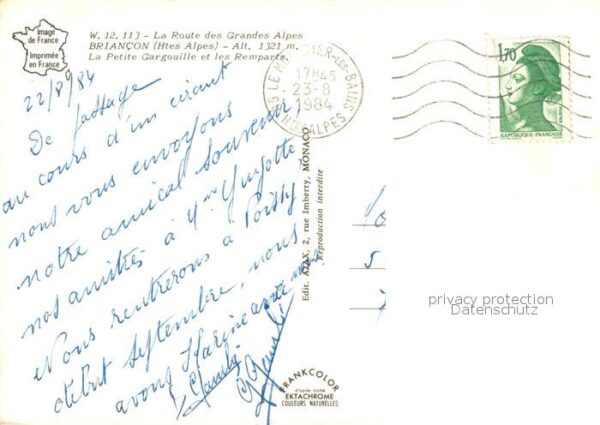 Image
de France
Imprimée
en France
W. 12. 113 - La Route des Grandes Alpes
BRIANÇON (Htes Alpes) - Alt. 1321 m.
La Petite Gargouille et les Remparts.
22/8/84
De passage
au cours d'un circuit
nous vous envoyons
notre amical souvenir
nos amitiés à Mme
Nous rentrerons à Poissy
début septembre, nous
avons Karine avec nous
Edit. AJAX, 2, rue Imberty, MONACO
Reproduction interdite
05 LE MONETIER-LES-BAINS
17H45
23-8
1984
HTES ALPES
1,70
REPUBLIQUE FRANÇAISE
privacy protection
Datenschutz
FRANKCOLOR
d'après cliché
EKTACHROME
COULEURS NATURELLES